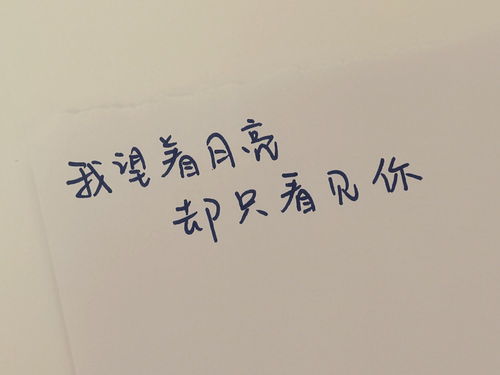 我望着月亮
却只看见你